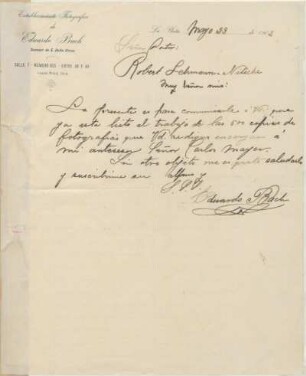 Establecimiento Fotográfico
de
Eduardo Bach
La Plata, Mayo 23 de
Señor Doctor
Robert Lehmann-Nitsche
Muy Señor mio:
La presente es para comunicarle á Vd. que
ya esta listo el trabajo de las 500 copias de
fotografias que Vd. se dignó encargar á
mi antecesor Señor Carlos Mayer.
Sin otro objeto me es grato saludarle
y suscribirme su
Eduardo Bach